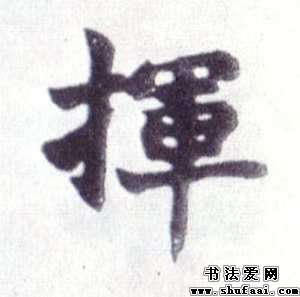 揮
书法爱网
www.shufaai.com